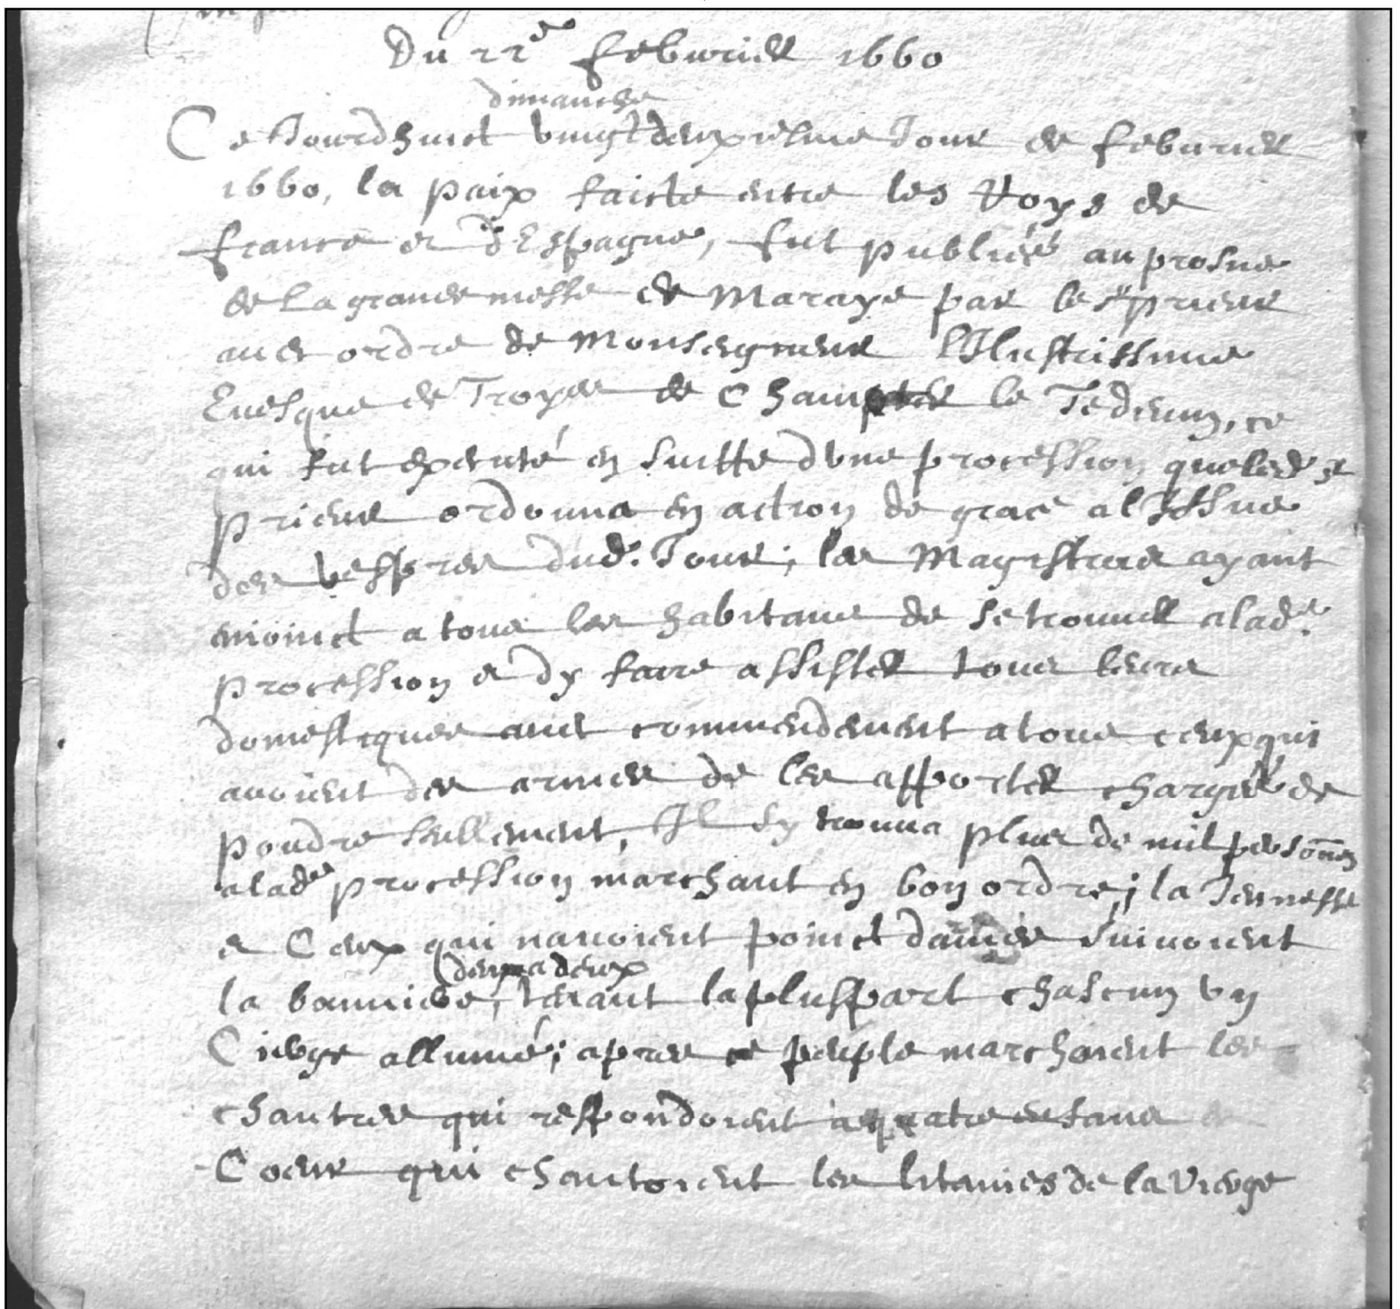 Du 22e febvrier 1660
dimanche
Ce Jourdhuict vingtdeuxiesme Jour de febvrier
1660, la paix faicte entre les Roys de
france et d'Espagne, fut publiéé au prosne
de La grande messe de Maraye par le sr prieur
avec ordre de Monseigneur L'Ilustrissime
Evesque de Troyes de Chanter le Te deum, ce
qui fut executé en suitte d'une procession que led. sr
prieur ordonna en action de grace a l'Issue
des vespres dud. Jour, les Magistras ayant
enioinct a tous les habitans de se trouver a lad.
procession et dy faire assister tous leurs
domestiques avec commendement a tous ceux qui
avoient des armes de les apporter chargées de
poudre seullement, Il sy trouva plus de mil personnes
a lad procession marchant en bon ordre; la Jeunesse
et Ceux qui navoient poinct darmes suivoient
deux a deux
la banniere, tenant la pluspart chascun un
Cierge allumé; apres ce peuple marchoient les
chantres qui respondoient a quatre enfans de
Coeur qui chantoient les litanies de la Vierge